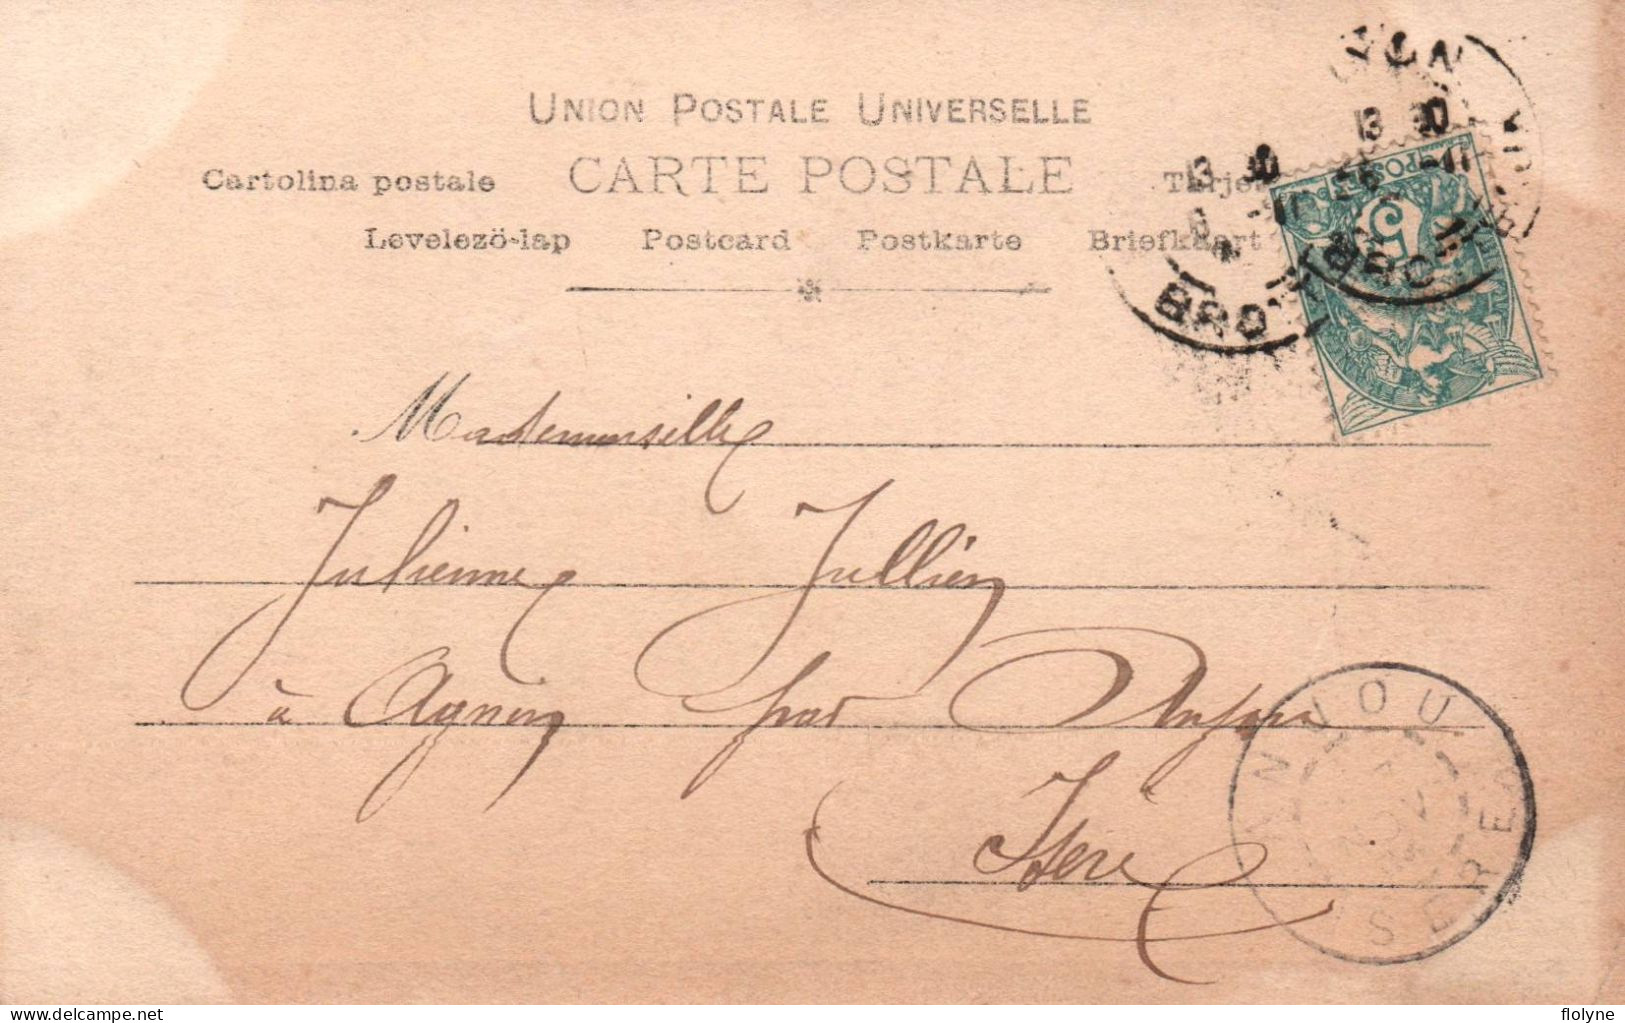 UNION POSTALE UNIVERSELLE
Cartolina postale CARTE POSTALE
Levelezö-lap Postcard Postkarte Briefkaart
13
BRO
POSTES
5
Mademoiselle
Julienne Jullien
à Agnin par Anjou
Isère
ANJOU
ISERE
delcampe.net
flolyne